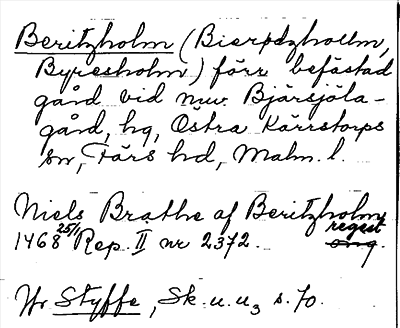 Beritzholm (Bierptzholm,
Byresholm) förr befästad
gård vid nuv. Bjärsjöla-
gård, hg, Östra Kärrstorps
sn, Färs hd, Malm. l.
Niels Brathe af Beritzholm
1468 25/1 Rep. II nr 2372. regest
Jfr Styffe, Sk. u. u3 s. 70.